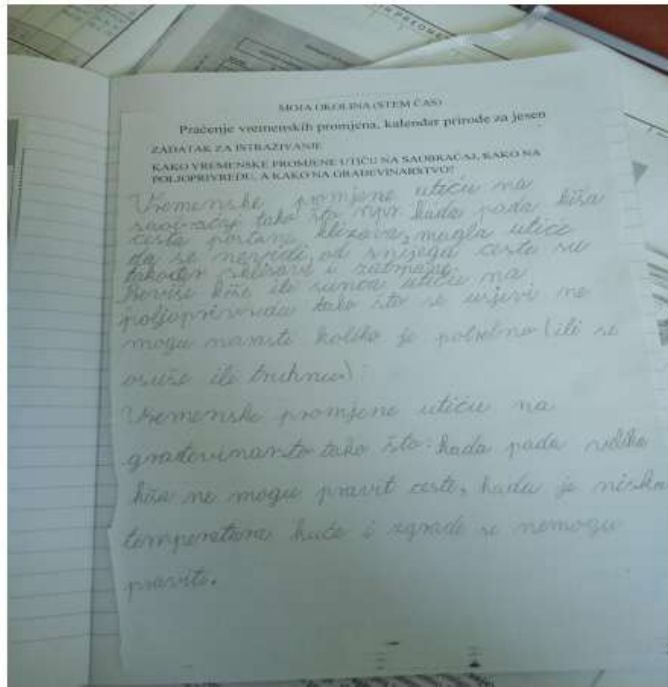 MOJA OKOLINA (STEM ČAS)
Praćenje vremenskih promjena, kalendar prirode za jesen
ZADATAK ZA ISTRAŽIVANJE
KAKO VREMENSKE PROMJENE UTIČU NA SAOBRAĆAJ, KAKO NA
POLJOPRIVREDU, A KAKO NA GRAĐEVINARSTVO?
Vremenske promjene utiču na
saobraćaj tako što npr kada pada kiša
cesta postane klizava, magla utiče
da se nevidi, od snijega ceste su
također skliske i
Previše kiše ili sunca utiču na
poljoprivredu tako što se usjevi ne
mogu narasti koliko je potrebno (ili se
osuše ili truhnu).
Vremenske promjene utiču na
građevinarsto tako što kada pada velika
kiša ne mogu pravit ceste, kada je niska
temperatura kuće i zgrade se nemogu
praviti.